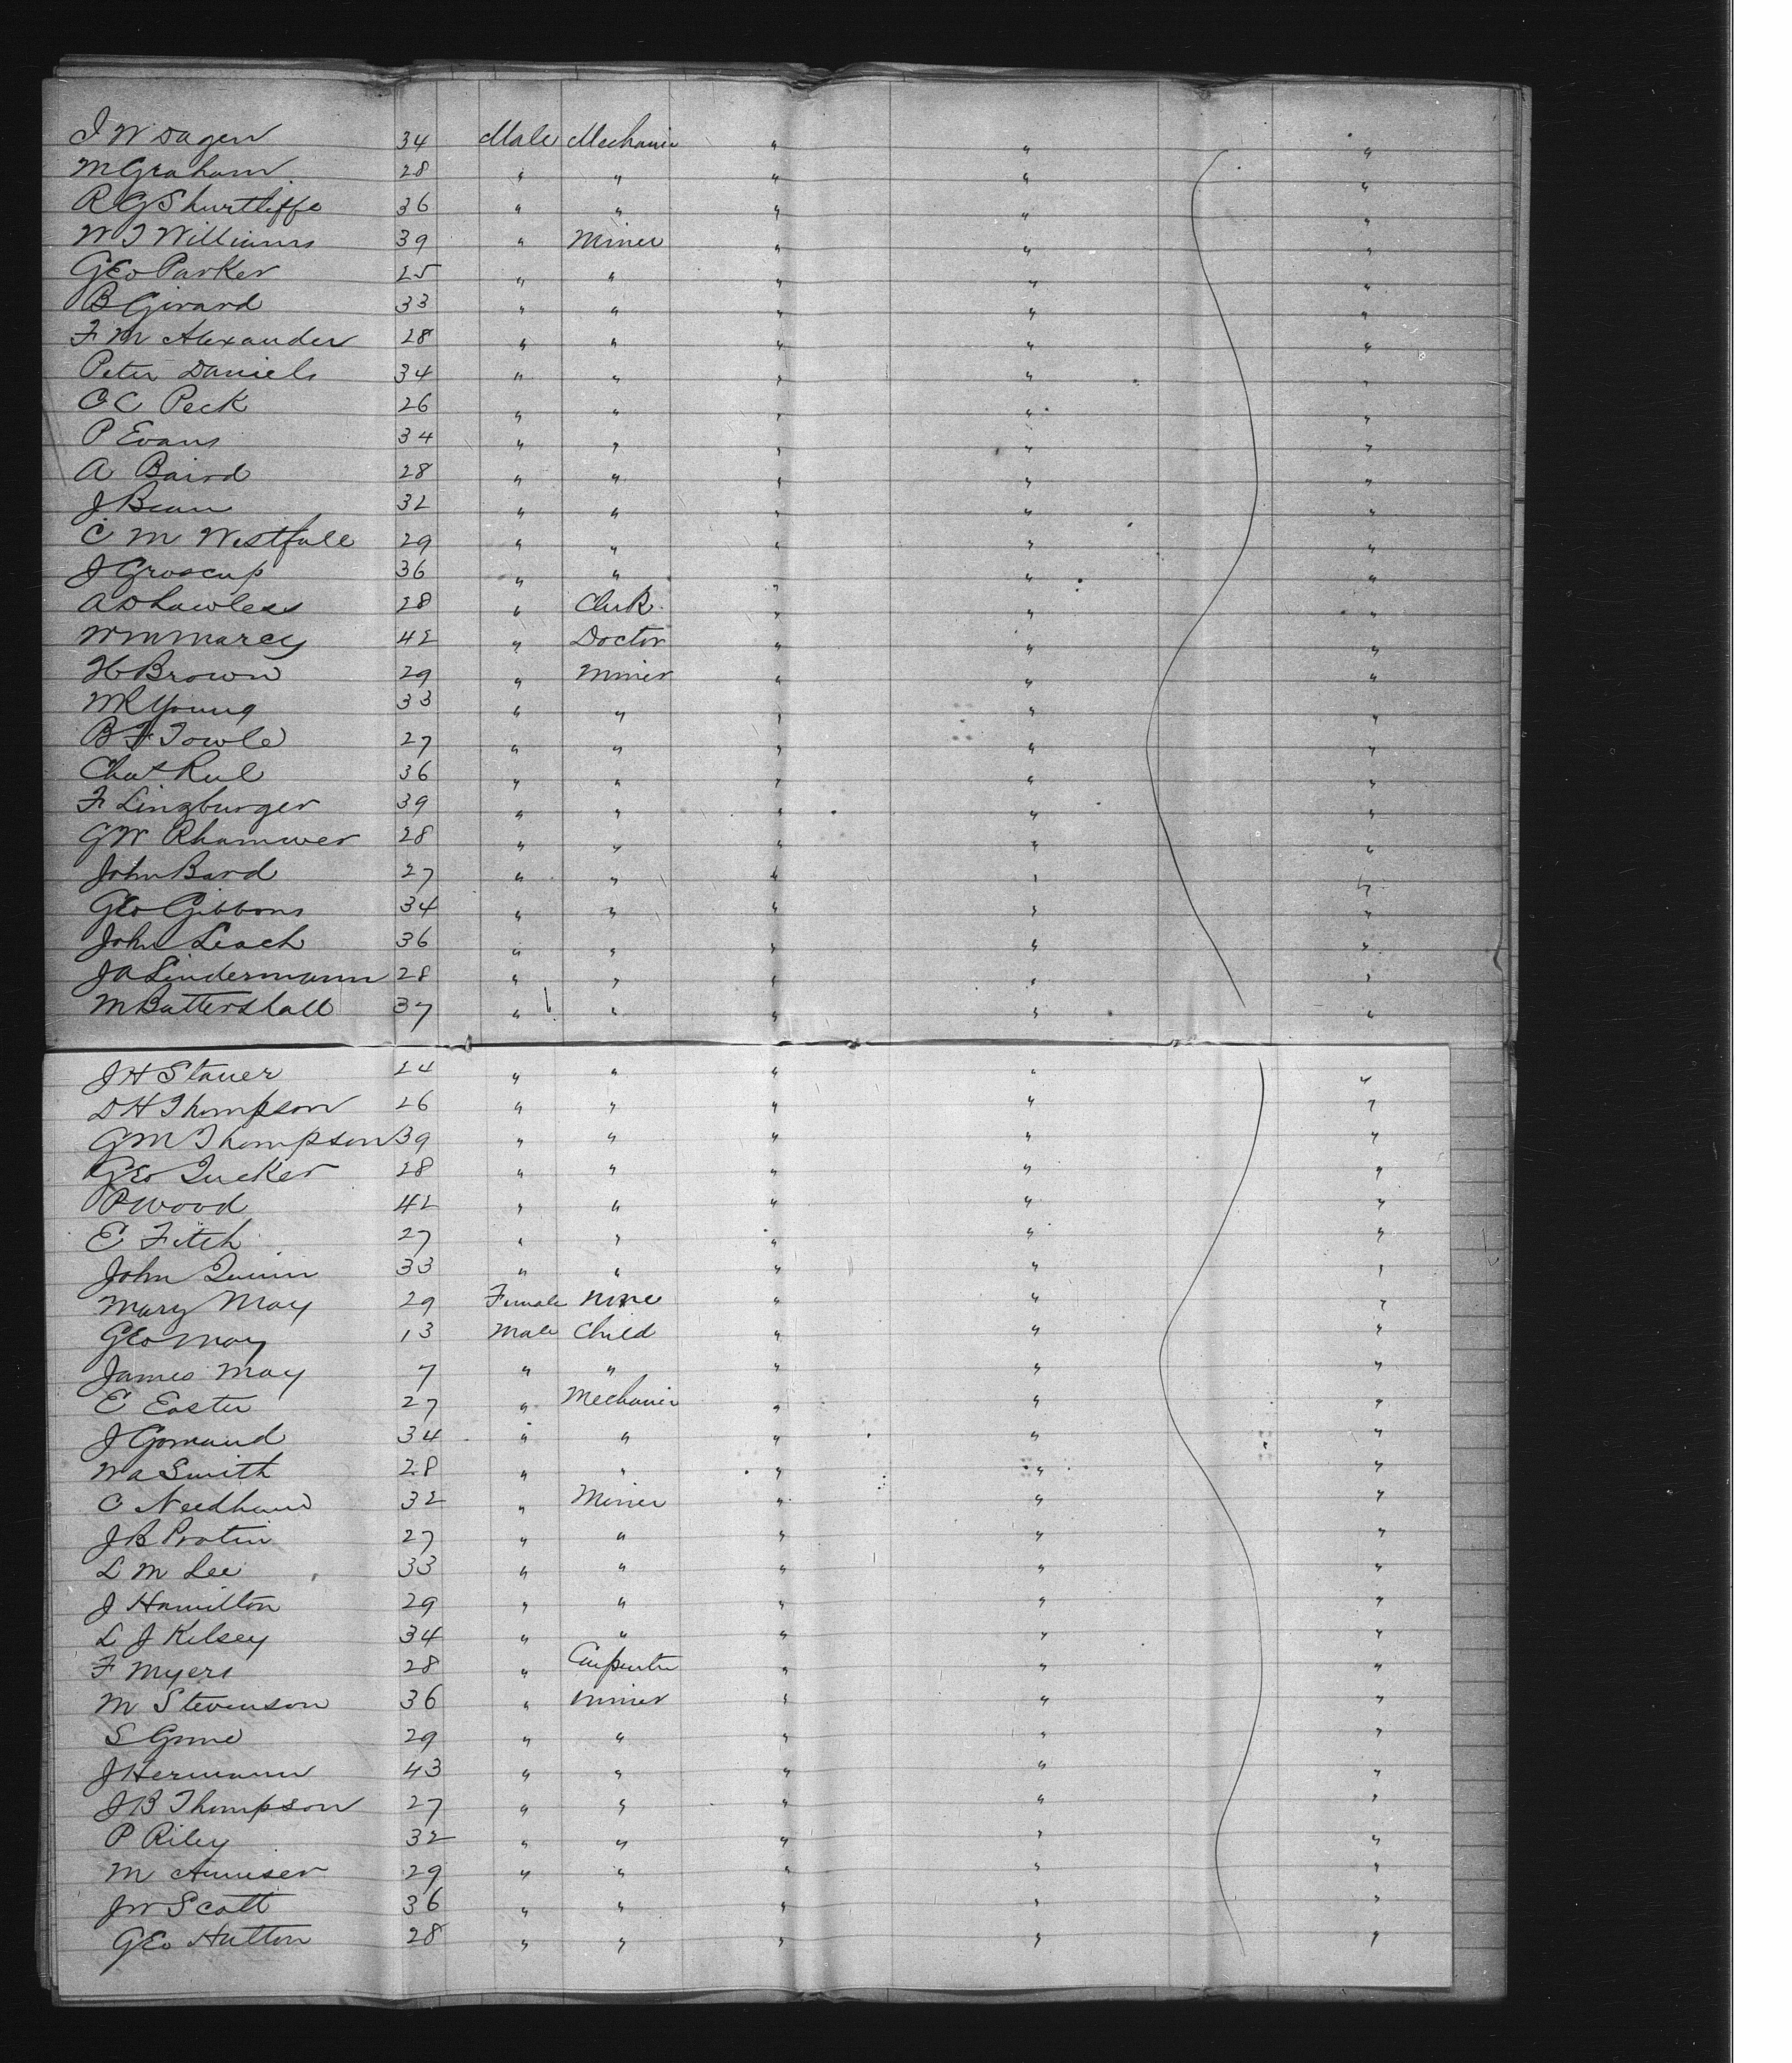 J W Dagen 34 Male Mechanic " " "
M Graham 28 " " " " "
R G Shurtliffe 36 " " " " "
W T Williams 39 " Miner " " "
Geo Parker 25 " " " " "
B Girard 33 " " " " "
F M Alexander 28 " " " " "
Peter Daniels 34 " " " " "
O C Peck 26 " " " " "
P Evans 34 " " " " "
A Baird 28 " " " " "
J Bean 32 " " " " "
C M Westfall 29 " " " " "
J Groscup 36 " " " " "
A D Lawless 28 " Clerk " " "
Wm Marcy 42 " Doctor " " "
H Brown 29 " Miner " " "
W R Young 33 " " " " "
B F Towle 27 " " " " "
Chas Rul 36 " " " " "
F Lingburger 39 " " " " "
G W 28 " " " " "
John Bard 27 " " " " "
Geo Gibbons 34 " " " " "
John Leach 36 " " " " "
J A Lindermann 28 " " " " "
M Battershall 37 " " " " "
J H Staver 24 " " " " "
D H Thompson 26 " " " " "
G M Thompson 39 " " " " "
Geo Tucker 28 " " " " "
P Wood 42 " " " " "
E Fitch 27 " " " " "
John Quinn 33 " " " " "
Mary May 29 Female None " " "
Geo May 13 Male Child " " "
James May 7 " " " " "
E Easter 27 " Mechanic " " "
J 34 " " " " "
W A Smith 28 " " " " "
C Needham 32 " Miner " " "
J B Protin 27 " " " " "
L M Lee 33 " " " " "
J Hamilton 29 " " " " "
L J Kelsey 34 " " " " "
F Myers 28 " Carpenter " " "
M Stevenson 36 " Miner " " "
S 29 " " " " "
J Hermann 43 " " " " "
J B Thompson 27 " " " " "
P Riley 32 " " " " "
M 29 " " " " "
J W Scott 36 " " " " "
Geo Hutton 28 " " " " "